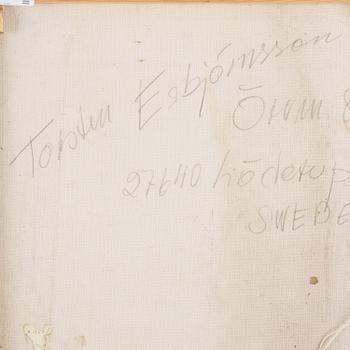 Torsten Esbjörnsson
Örum 8
27640 Löderup
SWEDE